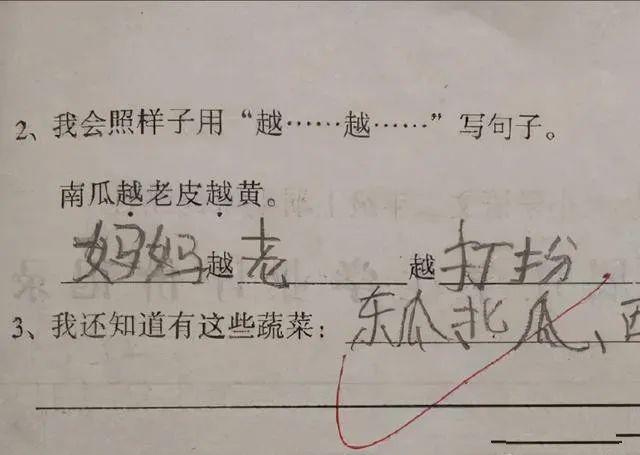 2、我会照样子用“越……越……”写句子。
南瓜越老皮越黄。
妈妈越老越打扮
3、我还知道有这些蔬菜：东瓜、北瓜、西